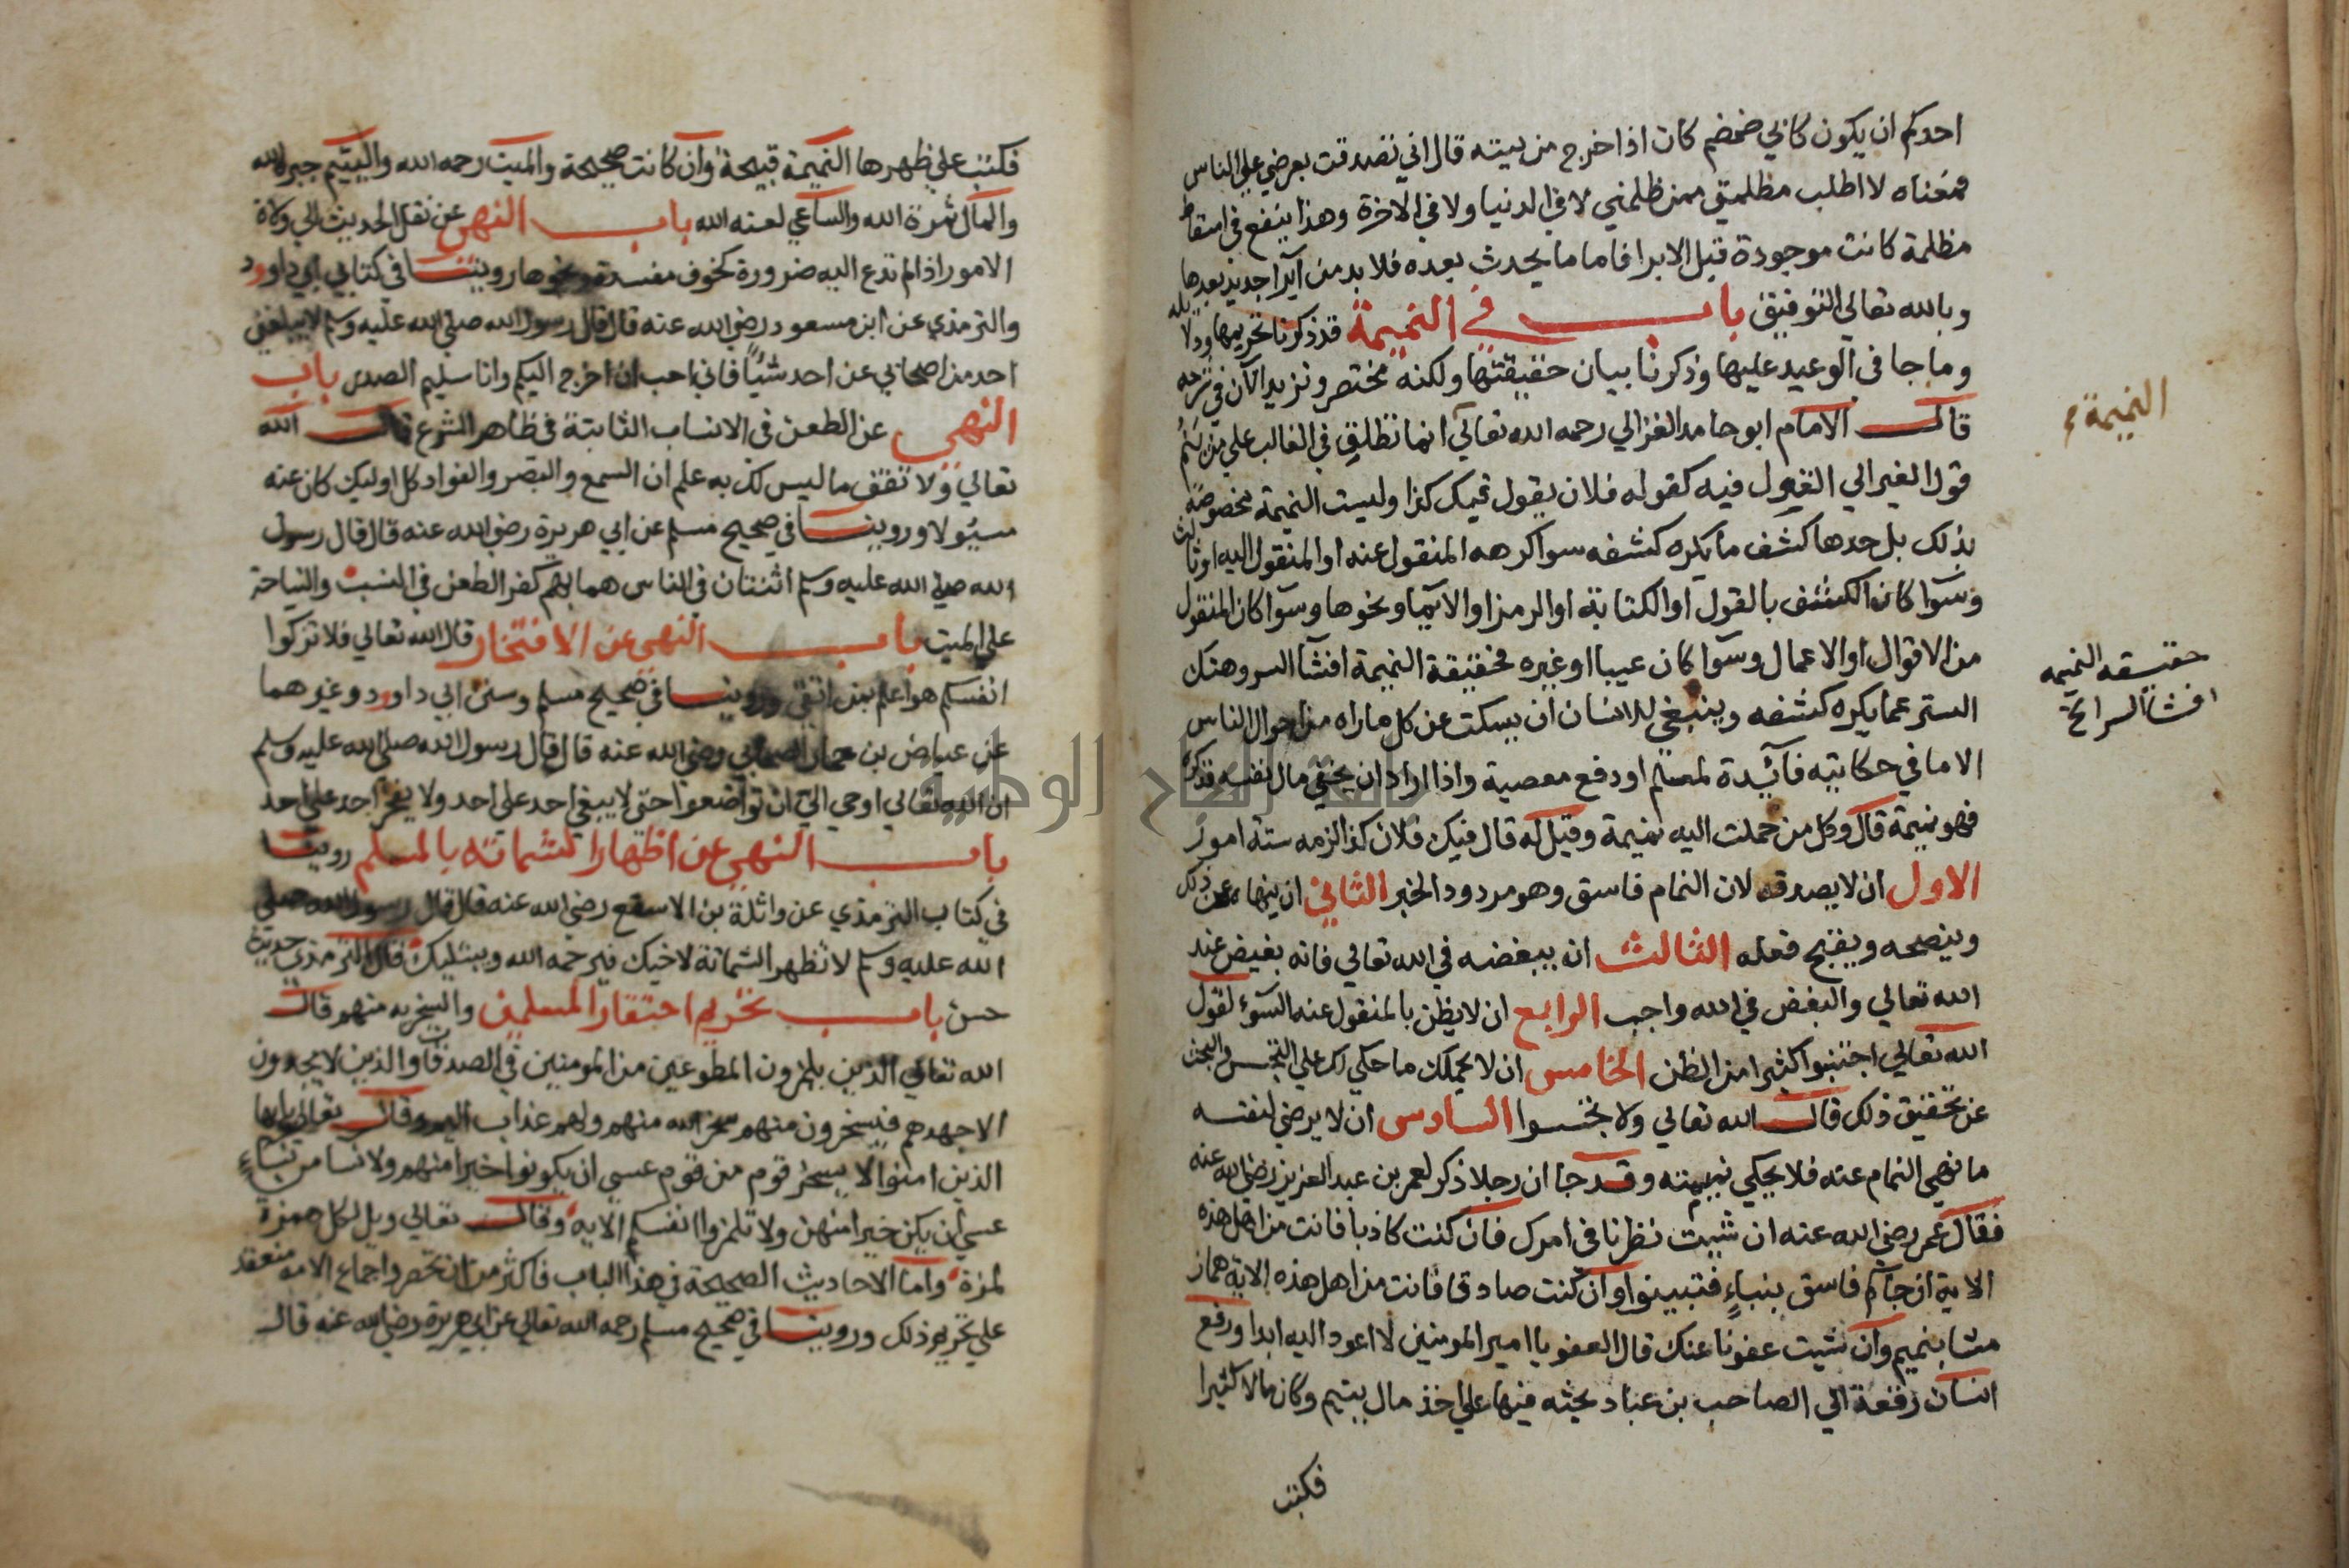 احدكم ان يكون كابي ضمضم كان اذا خرج من بيته قال اني تصدقت بعرضي علي الناس
فمعناه لا اطلب مظلمتي ممن ظلمني لا في الدنيا ولا في الاخرة وهذا ينفع في اسقاط
مظلمة كانت موجودة قبل الابرا فاما ما يحدث بعده فلا بد من ابرا جديد بعدها
وبالله تعالي التوفيق باب في النميمة قد ذكرنا تحريمها ودلايله
وما جا في الوعيد عليها وذكرنا بيان حقيقتها ولكنه مختصر ونزيد الآن في شرحه
قال الامام ابو حامد الغزالي رحمه الله تعالي انما تطلق في الغالب علي من ينم
قول الغير الي المقول فيه كقوله فلان يقول فيك كذا وليست النميمة مخصوصة
بذلك بل حدها كشف ما يكره كشفه سوا كرهه المنقول عنه او المنقول اليه او ثالث
وسوا كان الكشف بالقول او الكتابة او الرمز او الايما ونحوها وسوا كان المنقول
من الاقوال او الاعمال وسوا كان عيبا او غيره فحقيقة النميمة افشا السر وهتك
الستر عما يكره كشفه وينبغي للانسان ان يسكت عن كل ما راه من احوال الناس
الا ما في حكايته فائدة لمسلم او دفع معصية واذا اراد ان يخفي مال نفسه فذكره
فهو نميمة قال وكل من حملت اليه نميمة وقيل له قال فيك فلان كذا لزمه ستة امور
الاول ان لا يصدقه لان النمام فاسق وهو مردود الخبر الثاني ان ينهاه عن ذلك
وينصحه ويقبح فعله الثالث ان يبغضه في الله تعالي فانه بغيض عند
الله تعالي والبغض في الله واجب الرابع ان لا يظن بالمنقول عنه السوء لقول
الله تعالي اجتنبوا كثيرا من الظن الخامس ان لا يحملك ما حكي لك علي التجسس والبحث
عن تحقيق ذلك قال الله تعالي ولا تجسسوا السادس ان لا يرضي لنفسه
ما نهي النمام عنه فلا يحكي نميمته وقد جا ان رجلا ذكر لعمر بن عبد العزيز رضي الله عنه
فقال عمر رضي الله عنه ان شيت نظرنا في امرك فان كنت كاذبا فانت من اهل هذه
الاية ان جاكم فاسق بنباء فتبينوا وان كنت صادقا فانت من اهل هذه الاية هماز
مشا بنميم وان شيت عفونا عنك قال العفو يا امير المومنين لا اعود اليه ابدا ورفع
انسان رقعة الي الصاحب بن عباد يحثه فيها علي اخذ مال يتيم وكان مالا كثيرا
فكتب
النميمة
حقيقه النميمه
افشا السر الخ
فكتب علي ظهرها النميمة قبيحة وان كانت صحيحة والميت رحمه الله واليتيم جبره الله
والمال ثمرة الله والساعي لعنه الله باب النهي عن نقل الحديث الي ولاة
الامور اذا لم تدع اليه ضرورة كخوف مفسدة ونحوها روينا في كتابي ابي داوود
والترمذي عن ابن مسعود رضي الله عنه قال قال رسول الله صلي الله عليه وسلم لا يبلغني
احد من اصحابي عن احد شيأ فاني احب ان اخرج اليكم وانا سليم الصدر باب
النهي عن الطعن في الانساب الثابتة في ظاهر الشرع قال الله
تعالي ولا تقف ما ليس لك به علم ان السمع والبصر والفواد كل اوليك كان عنه
مسيولا وروينا في صحيح مسلم عن ابي هريرة رضي الله عنه قال قال رسول
الله صلي الله عليه وسلم اثنتان في الناس هما بهم كفر الطعن في النسب والنياحة
علي الميت باب النهي عن الافتخار قال الله تعالي فلا تزكوا
انفسكم هو اعلم بمن اتقي وروينا في صحيح مسلم وسنن ابي داوود وغيرهما
عن عياض بن حمار الصحابي رضي الله عنه قال قال رسول الله صلي الله عليه وسلم
ان الله تعالي اوحي الي ان تواضعوا حتي لا يبغي احد علي احد ولا يفخر احد علي احد
باب النهي عن اظهار الشماتة بالمسلم روينا
في كتاب الترمذي عن واثلة بن الاسقع رضي الله عنه قال قال رسول الله صلي
الله عليه وسلم لا تظهر الشماتة لاخيك فيرحمه الله ويبتليك قال الترمذي حديث
حسن باب تحريم احتقار المسلمين والسخريه منهم قال
الله تعالي الذين يلمزون المطوعين من المومنين في الصدقات والذين لا يجدون
الا جهدهم فيسخرون منهم سخر الله منهم ولهم عذاب اليم وقال تعالي يا ايها
الذين امنوا لا يسخر قوم من قوم عسي ان يكونوا خيرا منهم ولا نسا من نساء
عسي ان يكن خيرا منهن ولا تلمزوا انفسكم الايه وقال تعالي ويل لكل همزة
لمزة واما الاحاديث الصحيحة في هذا الباب فاكثر من ان تحصر واجماع الامه منعقد
علي تحريم ذلك وروينا في صحيح مسلم رحمه الله تعالي عن ابي هريرة رضي الله عنه قال
جامعة النجاح الوطنية